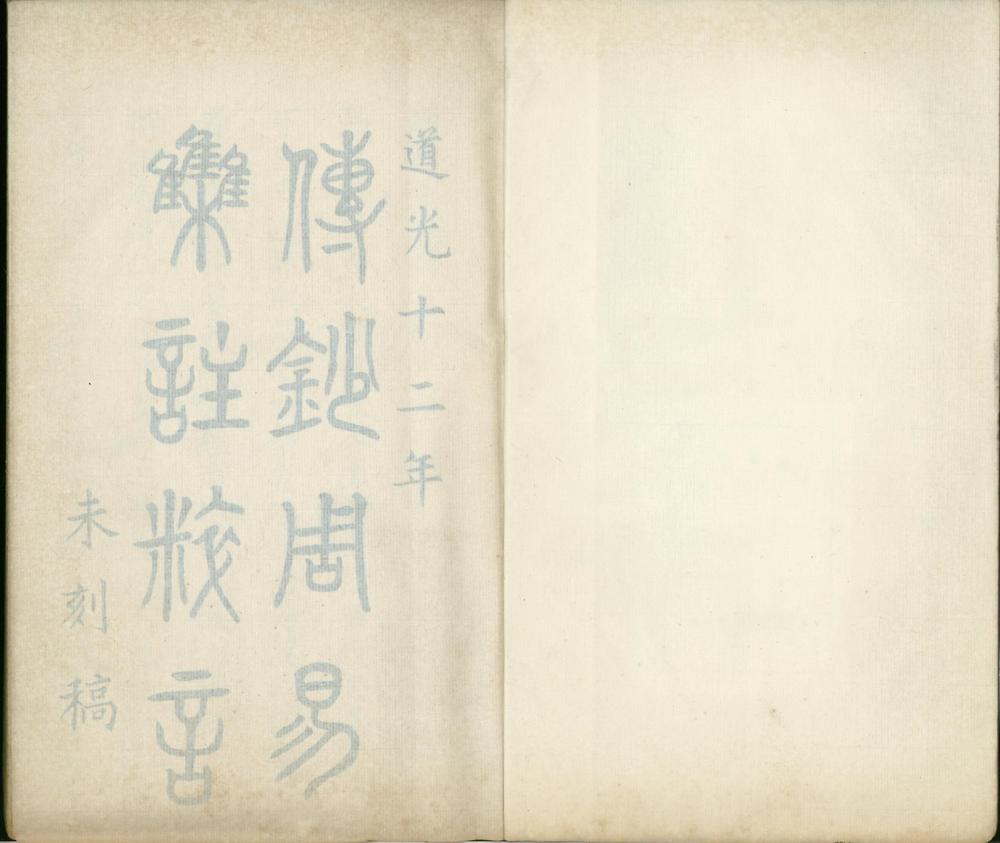 道光十二年
傳鈔周易
雧註粹言
未刻稿